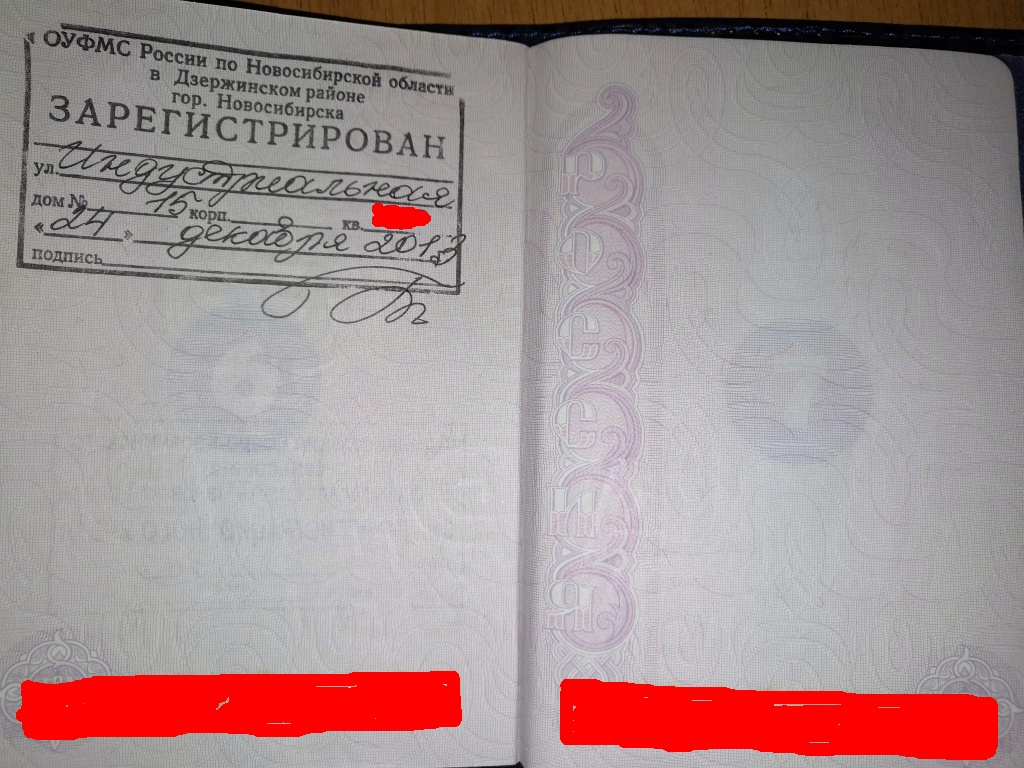 ОУФМС России по Новосибирской области
в Дзержинском районе
гор. Новосибирска
ЗАРЕГИСТРИРОВАН
ул. Индустриальная
дом № 15 корп. кв.
«24» декабря 2013
подпись
6
РОССИЯ
7